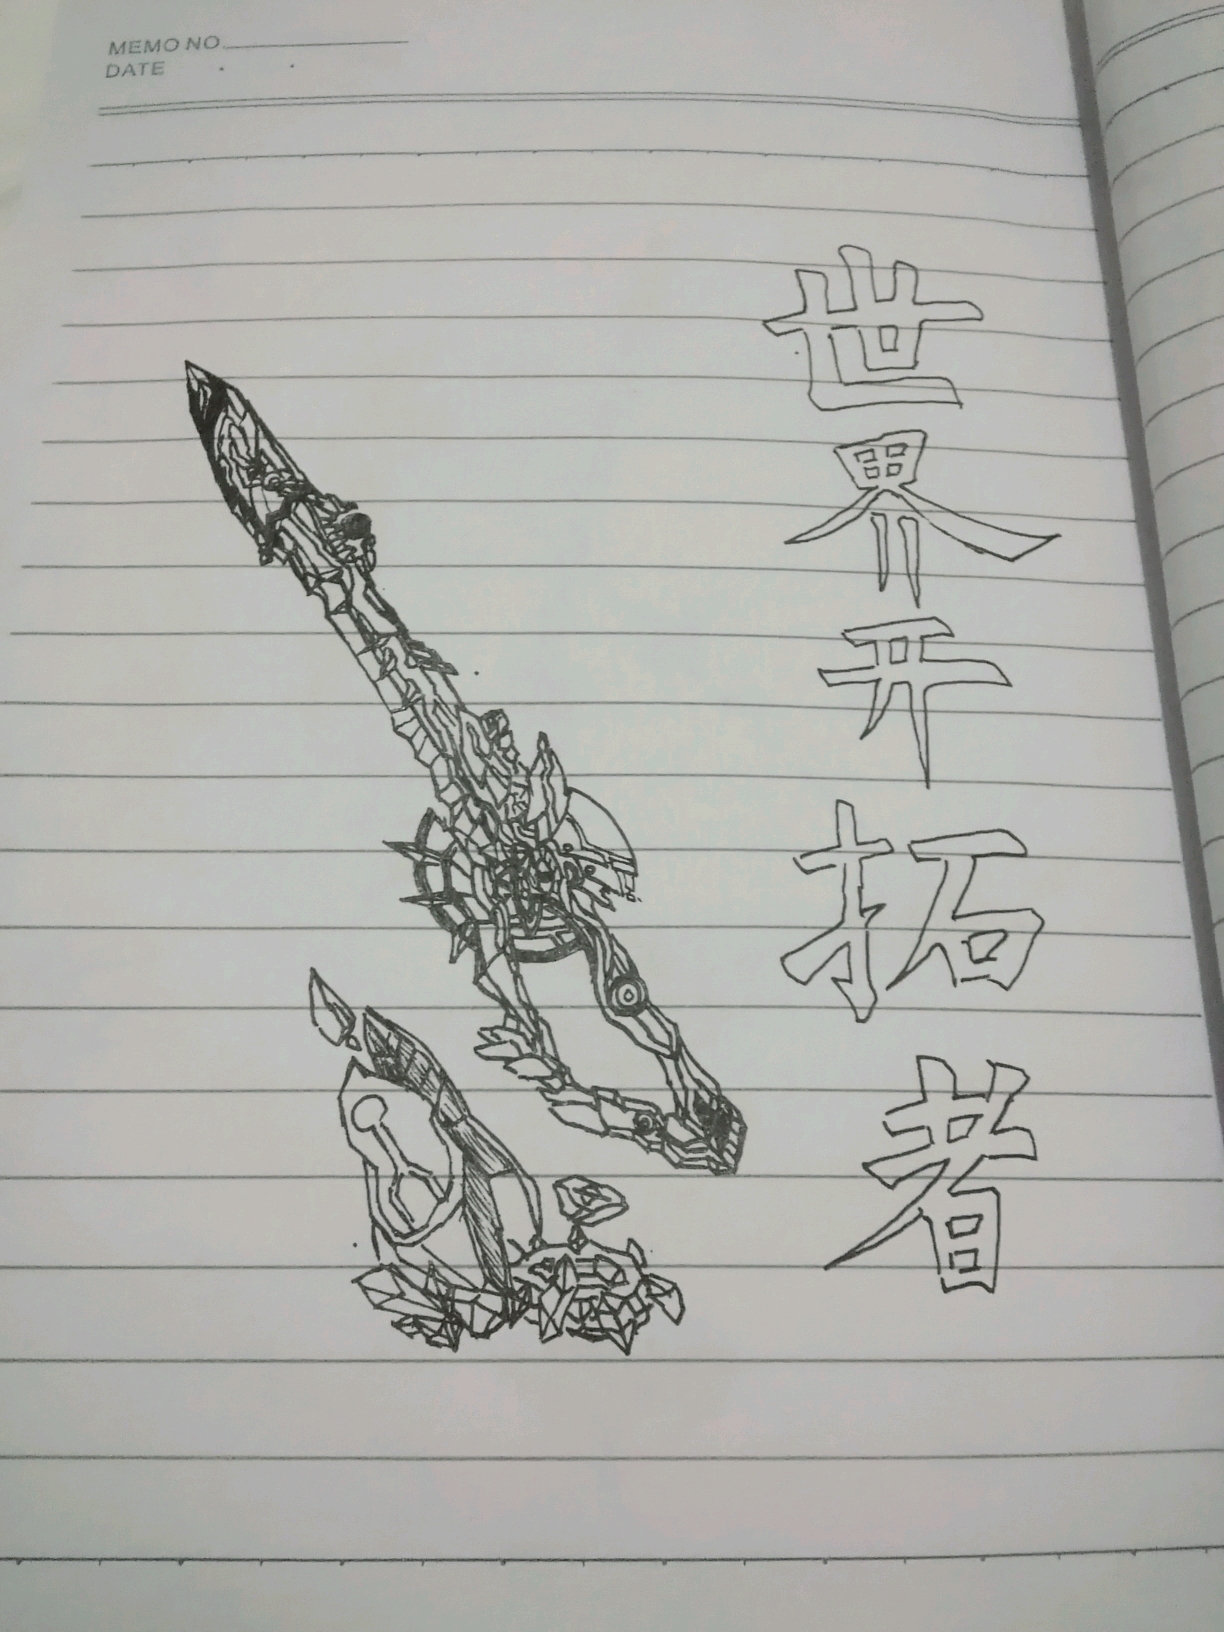 MEMO NO.
DATE . .
世界开拓者